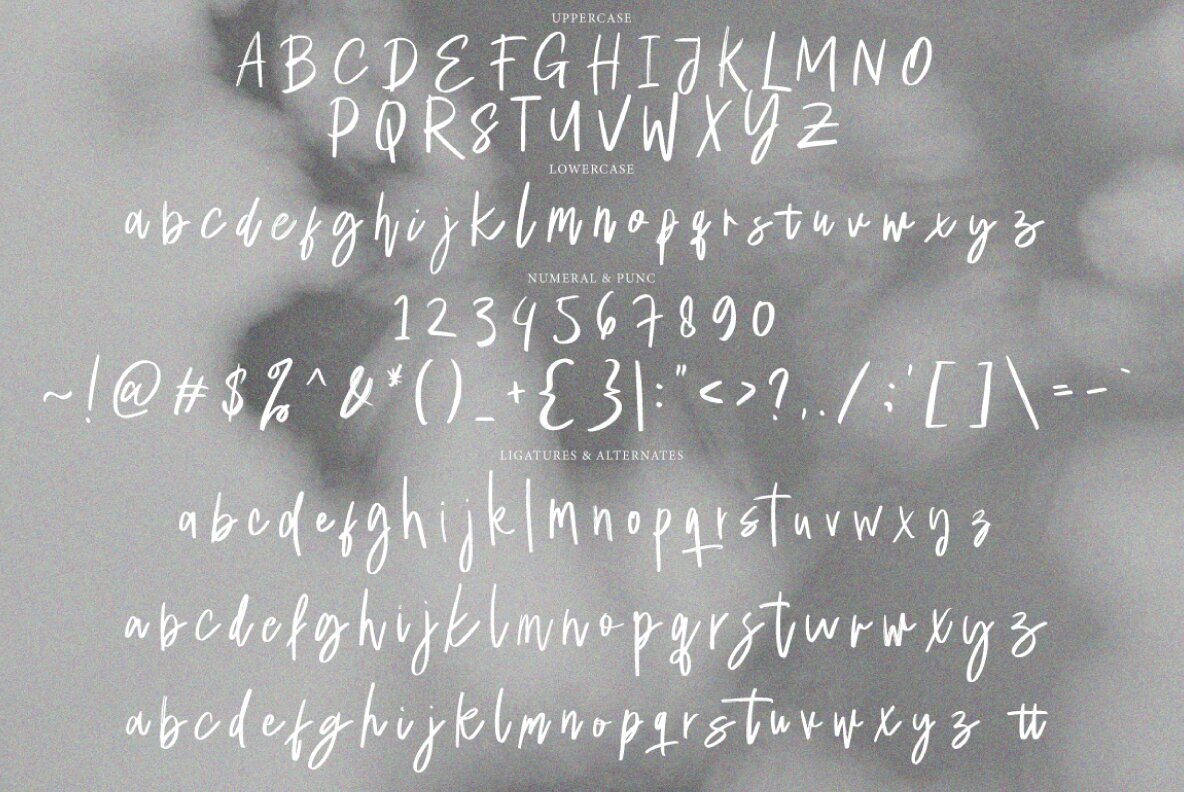 UPPERCASE
A B C D E F G H I J K L M N O
P Q R S T U V W X Y Z
LOWERCASE
a b c d e f g h i j k l m n o p q r s t u v w x y z
NUMERAL & PUNC
1 2 3 4 5 6 7 8 9 0
~ ! @ # $ % ^ & * ( ) _ + { } | : " < > ? , . / ; ' [ ] \ = - `
LIGATURES & ALTERNATES
a b c d e f g h i j k l m n o p q r s t u v w x y z
a b c d e f g h i j k l m n o p q r s t u v w x y z
a b c d e f g h i j k l m n o p q r s t u v w x y z tt